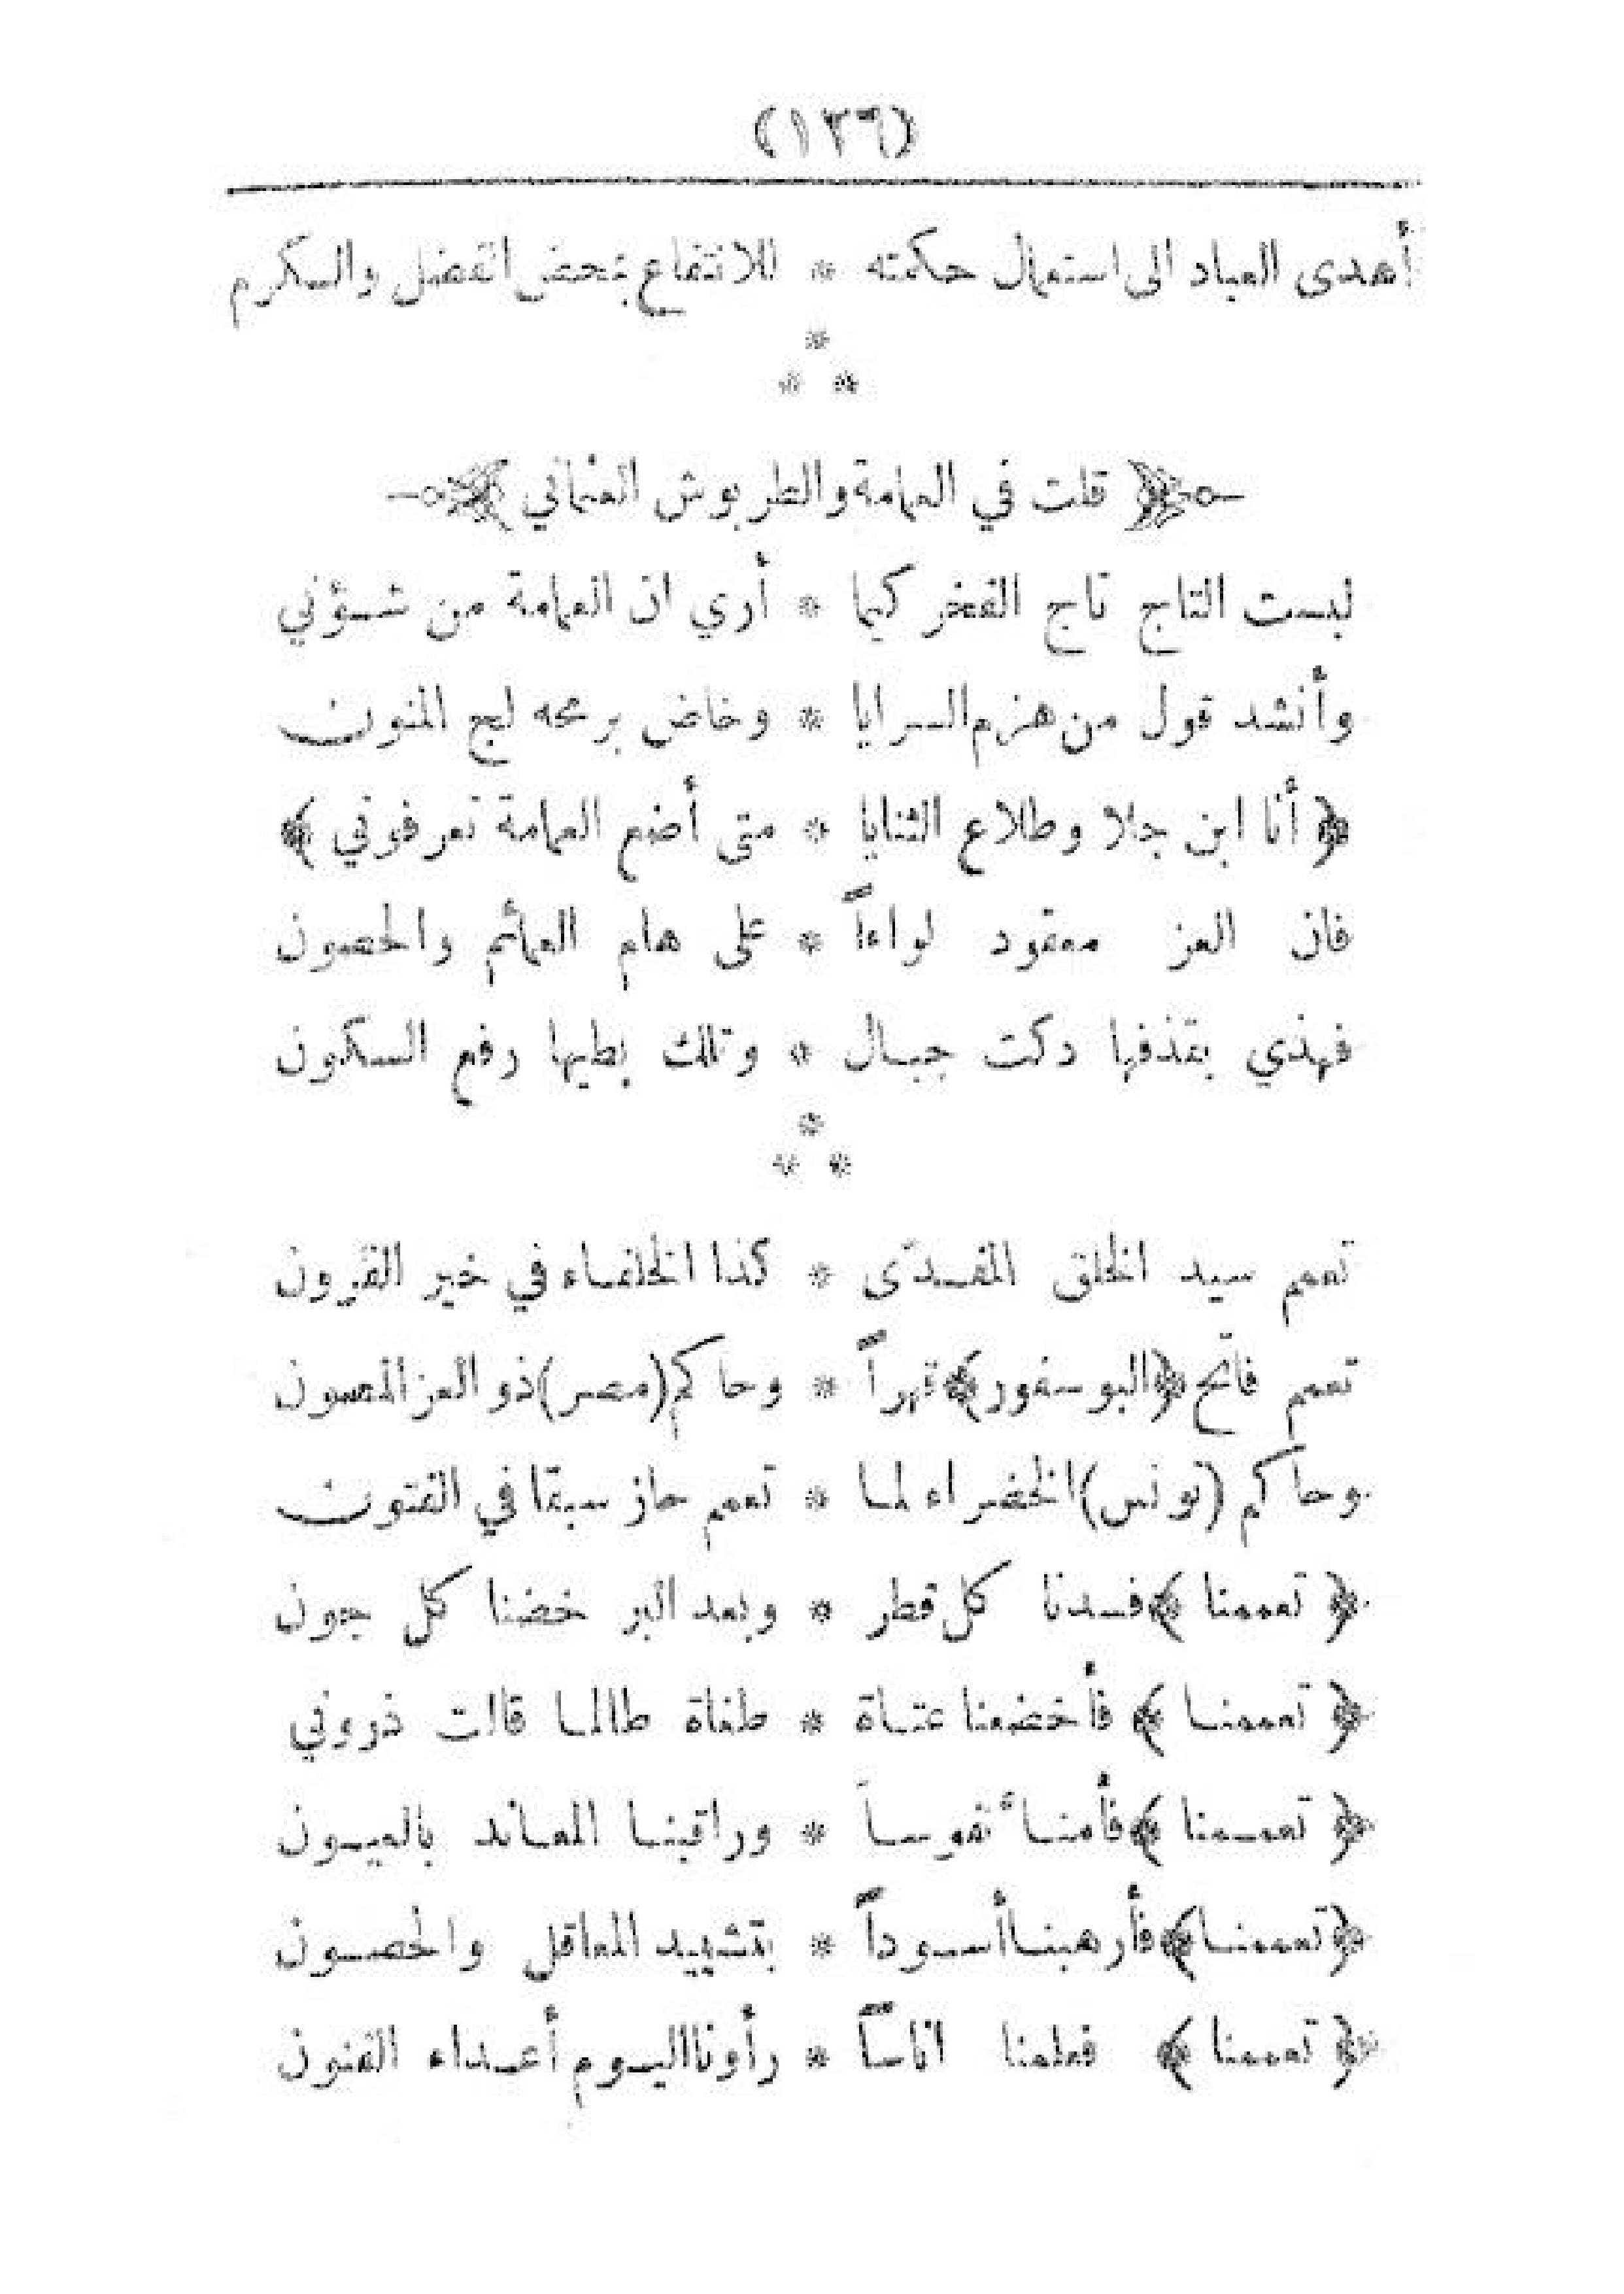 (١٣٦)
أهدى العباد الى استعمال حكمته * للانتفاع بمحض الفضل والكرم
*
* *
﴿ قلت في العمامة والطربوش العثماني ﴾
لبست التاج تاج الفخر كيما * أري ان العمامة من شؤني
وأنشد قول من هزم السرايا * وخاض برمحه لجج المنون
﴿ أنا ابن جلا وطلاع الثنايا * متى أضع العمامة تعرفوني ﴾
فان العز معقود لواءاً * على هام العمائم والحصون
فهذي بقذفها دكت جبال * وتلك بطيها رفع السكون
*
* *
تعمم سيد الخلق المفدّى * كذا الخلفاء في خير القرون
تعمم فاتح ﴿البوسفور﴾ قهراً * وحاكم (مصر) ذو العز المصون
وحاكم (تونس) الخضراء لما * تعمم حاز سبقا في الفتون
﴿ تعممنا ﴾ فسدنا كل قطر * وبعد البر خضنا كل جون
﴿ تعممنا ﴾ فأخضعنا عتاة * طغاة طالما قالت ذروني
﴿ تعممنا ﴾ فأمنا نفوساً * وراقبنا المعاند بالعيون
﴿تعممنا﴾ فأرهبنا أسوداً * بتشييد المعاقل والحصون
﴿ تعممنا ﴾ فعلمنا اناساً * رأونا اليوم أعداء الفنون